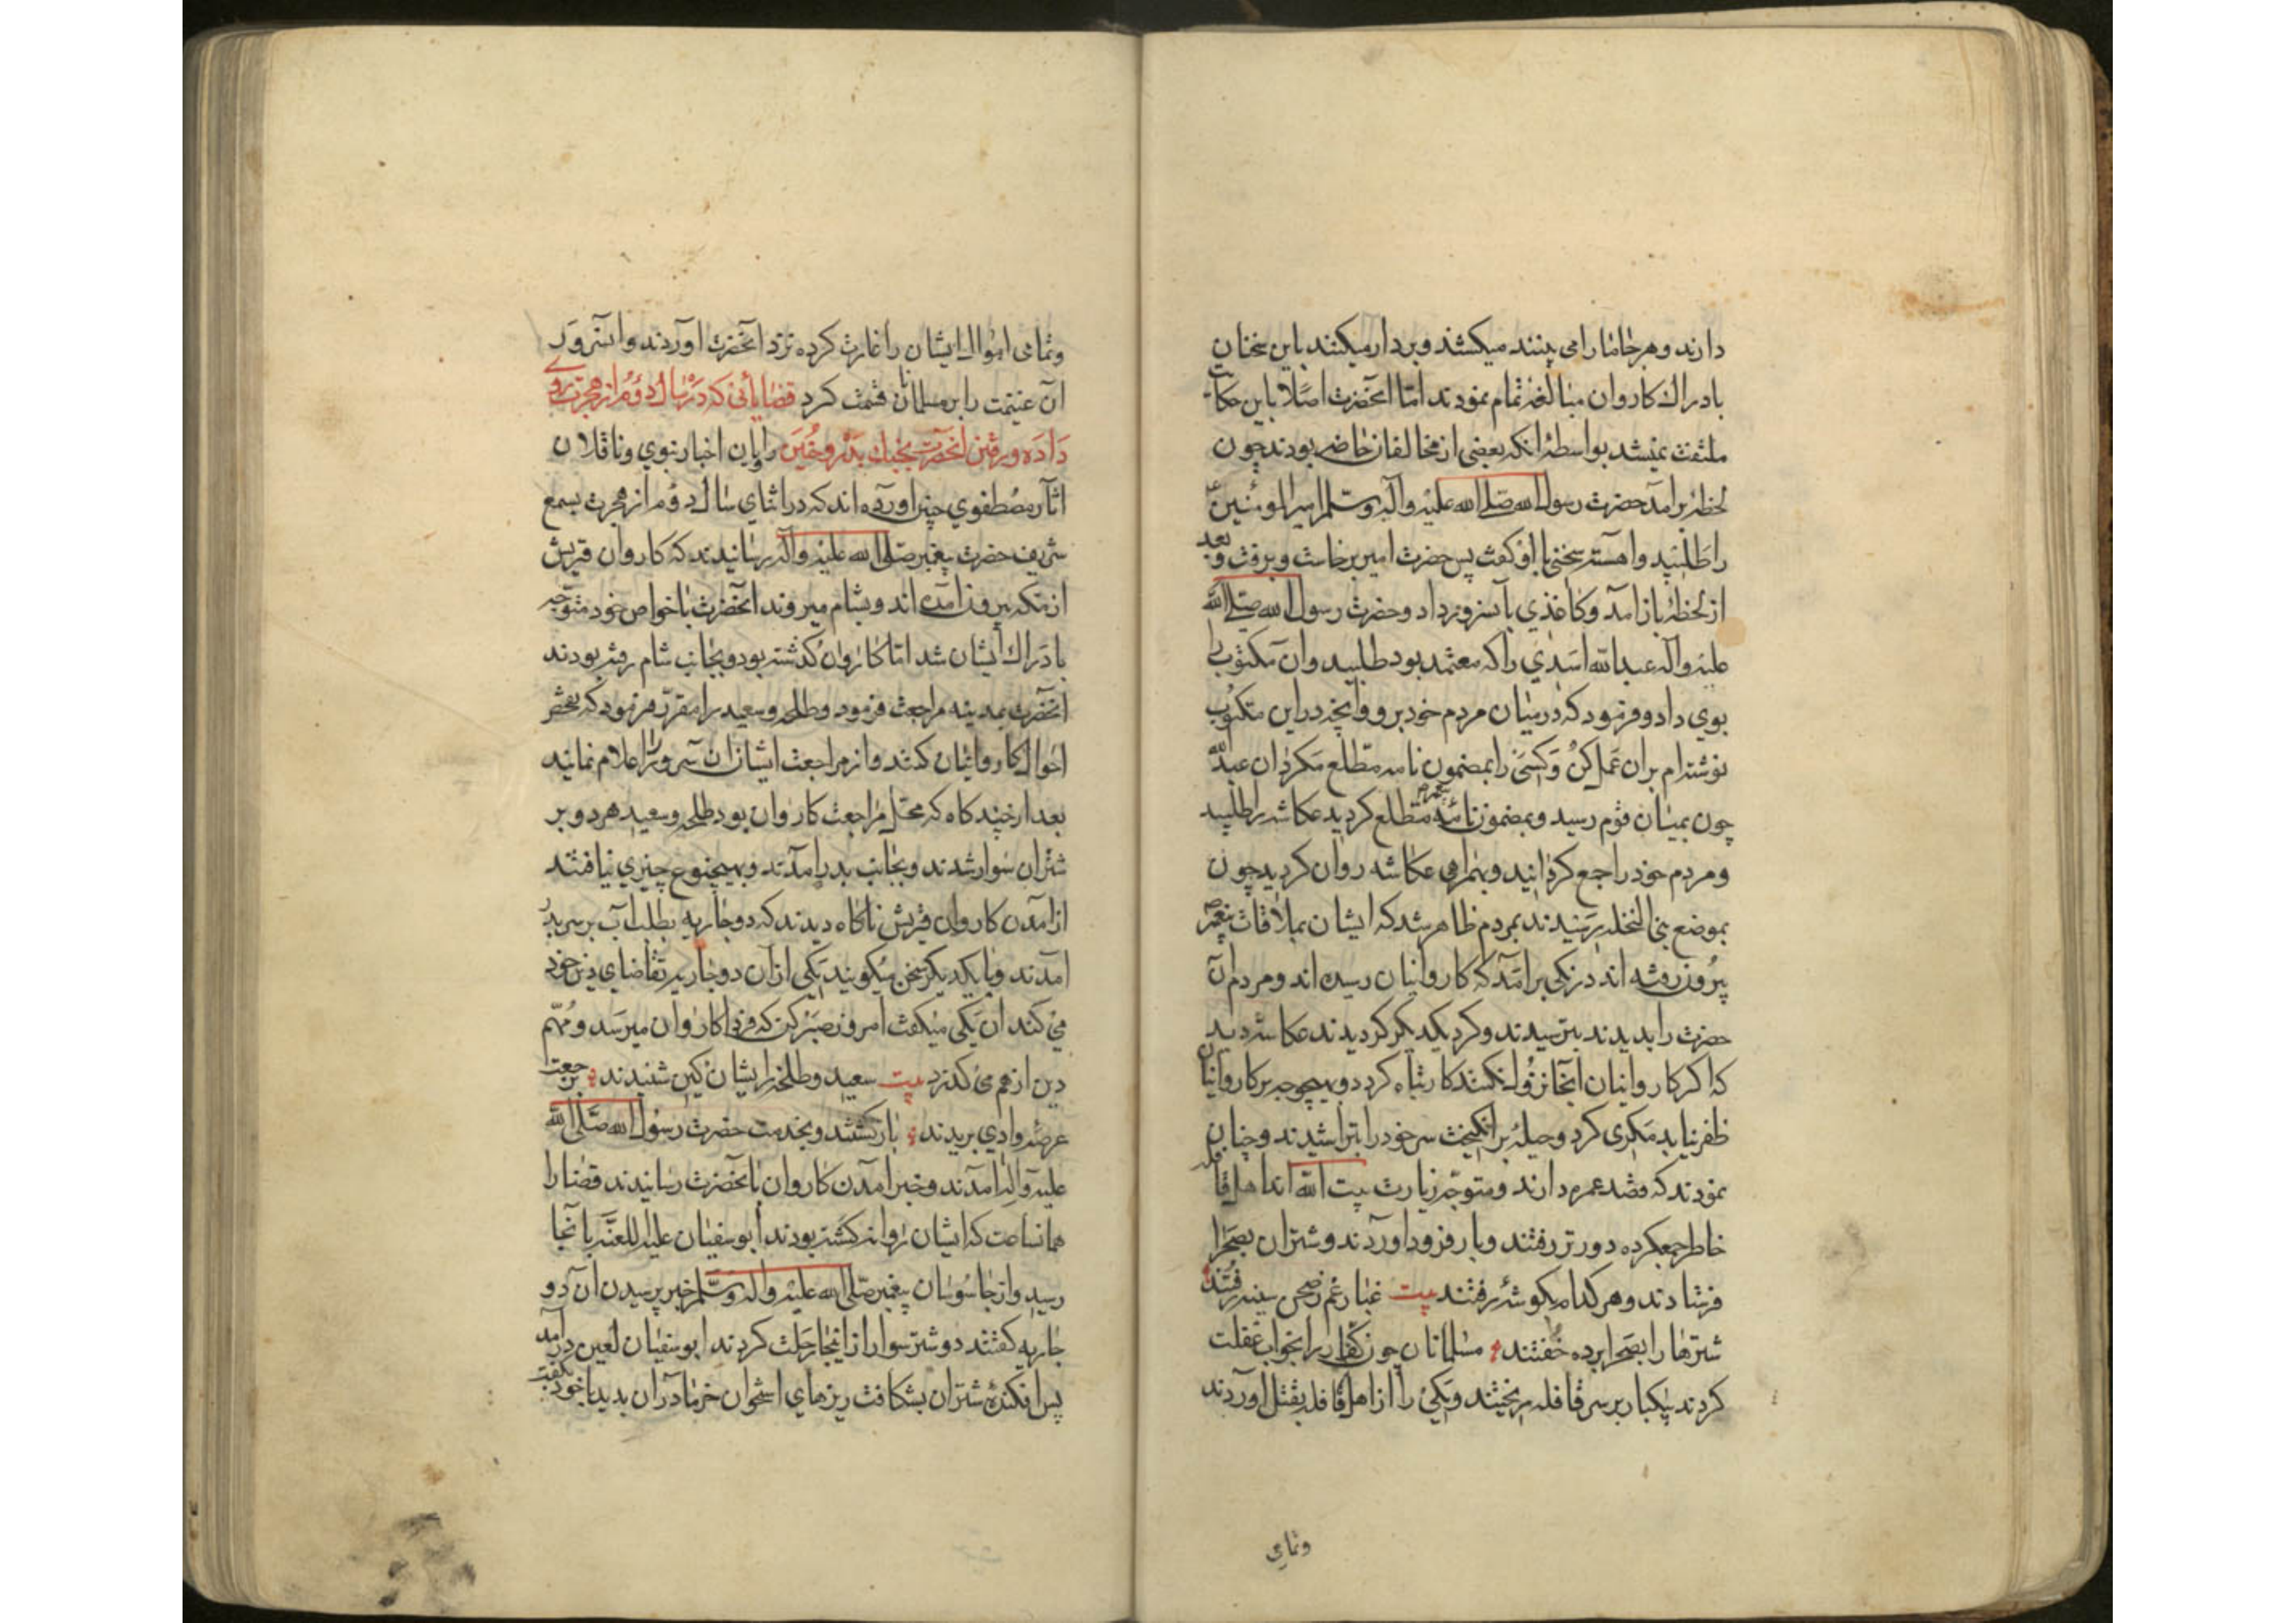 دارند و هر جا ما را می بینند میکشند و بر دار میکنند باین سخنان
بادراك كاروان مبالغه تمام نمودند اما آنحضرت اصلا باین حکایت
ملتفت نمیشد بواسطهٔ آنکه بعضی از مخالفان حاضر بودند چون
لحظهٔ برآمد حضرت رسول الله صلی الله علیه وآله وسلم امیرالمؤمنین ع
را طلبید و آهسته سخنی با او گفت پس حضرت امیر برخاست و برفت و بعد
از لحظهٔ باز آمد و کاغذی بآنسرور داد و حضرت رسول الله صلی الله
علیه وآله عبدالله اسدی را که معتمد بود طلبید و آن مکتوب را
بوی داد و فرمود که در میان مردم خود برو و آنچه در این مکتوب
نوشته ام بر آن عمل کن و کسی را بمضمون نامه مطلع مگردان عبدالله
چون بمیان قوم رسید و بمضمون نامهٔ پیغمبر مطلع گردید عکاشه را طلبید
و مردم خود را جمع گردانید و بهمراهی عکاشه روان گردید چون
بموضع النخله رسیدند بمردم ظاهر شد که ایشان بملاقات پیغمبر
بیرون رفته اند زنکی برآمد که کاروانیان رسیده اند و مردم آن
حضرت را بدیدند بترسیدند و کرد یکدیگر گردیدند عکاشه دید
که اگر کاروانیان آنجا نزول نکنند کار تباه گردد و بهیچوجه بر کاروانیان
ظفر نیابد مکری کرد و حیلهٔ برانگیخت سر خود را بتراشیدند و چنان
نمودند که قصد عمره دارند و متوجه زیارت بیت الله اند اهل قافله
خاطر جمع کرده دورتر رفتند و بار فرود آوردند و شتران بصحرا
فرستادند و هر کدام بگوشهٔ رفتند بیت غبار غم ز صحن سینه رفتند
شترها را بصحرا برده خفتند مسلمانان چون کفار را بخواب غفلت
کردند بیکبار بر سر قافله ریختند و یکی را از اهل قافله بقتل آوردند
وتمامی
وتمامی اموال ایشان را غارت کرده نزد آنحضرت آوردند و آنسرور
آن غنیمت را بر مسلمانان قسمت کرد قضایائی که در سال دوم از هجرت روی
داده و رفتن آنحضرت بجنك بدر و حنین راویان اخبار نبوی و ناقلان
آثار مصطفوی چنین آورده اند که در اثنای سال دوم از هجرت بسمع
شریف حضرت پیغمبر صلی الله علیه وآله رسانیدند که کاروان قریش
از مکه بیرون آمده اند و بشام میروند آنحضرت با خواص خود متوجه
بادراك ایشان شد اما کاروان گذشته بود و بجانب شام رفته بودند
آنحضرت بمدینه مراجعت فرمود و طلحه و سعید را مقرر فرمود که تفحص
احوال کاروانیان کنند و از مراجعت ایشان آن سرور را اعلام نمایند
بعد از چند گاه که محل مراجعت کاروان بود طلحه و سعید هر دو بر
شتران سوار شدند و بجانب بدر آمدند و بهیچنوع چیزی نیافتند
از آمدن کاروان قریش ناگاه دیدند که دو جاریه بطلب آب بر سر بدر
آمدند و با یکدیگر سخن میگویند یکی از آن دو جاریه تقاضای دین خود
می کند آن یکی میگفت امروز صبر کن که فردا کاروان میرسد و مهم
دین از هم می گذرد بیت سعید و طلحه ز ایشان کین شنیدند برجعت
عرصهٔ وادی بریدند بازگشتند و بخدمت حضرت رسول الله صلی الله
علیه وآله آمدند و خبر آمدن کاروان بآنحضرت رسانیدند قضا را
همانساعت که ایشان روانه گشته بودند ابوسفیان علیه اللعنه بآنجا
رسید و از جاسوسان پیغمبر صلی الله علیه وآله وسلم خبر پرسید آن دو
جاریه گفتند دو شتر سوار از اینجا رحلت کردند ابوسفیان لعین درآمد
پس افکندهٔ شتران بشکافت ریزهای استخوان خرما در آن بدید با خود گفت